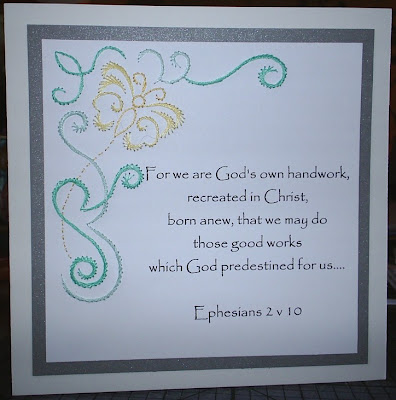 For we are God's own handwork,
recreated in Christ,
born anew, that we may do
those good works
which God predestined for us....
Ephesians 2 v 10